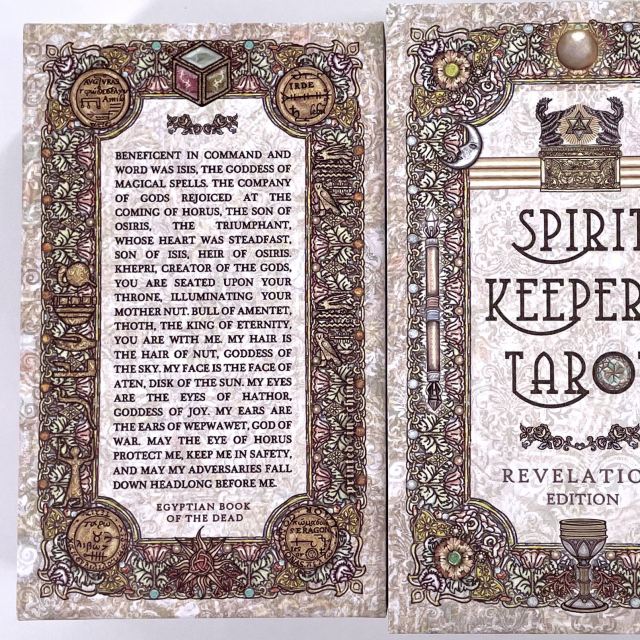 BENEFICENT IN COMMAND AND
WORD WAS ISIS, THE GODDESS OF
MAGICAL SPELLS. THE COMPANY
OF GODS REJOICED AT THE
COMING OF HORUS, THE SON OF
OSIRIS, THE TRIUMPHANT,
WHOSE HEART WAS STEADFAST,
SON OF ISIS, HEIR OF OSIRIS.
KHEPRI, CREATOR OF THE GODS,
YOU ARE SEATED UPON YOUR
THRONE, ILLUMINATING YOUR
MOTHER NUT. BULL OF AMENTET,
THOTH, THE KING OF ETERNITY,
YOU ARE WITH ME. MY HAIR IS
THE HAIR OF NUT, GODDESS OF
THE SKY. MY FACE IS THE FACE OF
ATEN, DISK OF THE SUN. MY EYES
ARE THE EYES OF HATHOR,
GODDESS OF JOY. MY EARS ARE
THE EARS OF WEPWAWET, GOD OF
WAR. MAY THE EYE OF HORUS
PROTECT ME, KEEP ME IN SAFETY,
AND MAY MY ADVERSARIES FALL
DOWN HEADLONG BEFORE ME.
EGYPTIAN BOOK
OF THE DEAD
SPIRIT
KEEPER
TAROT
REVELATION
EDITION